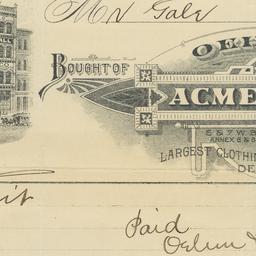 Mr Gale
OEH
BOUGHT OF
ACME
5 & 7 W. B
ANNEX 6 & 8
LARGEST CLOTHIN
DE
it
Paid
Oehm &